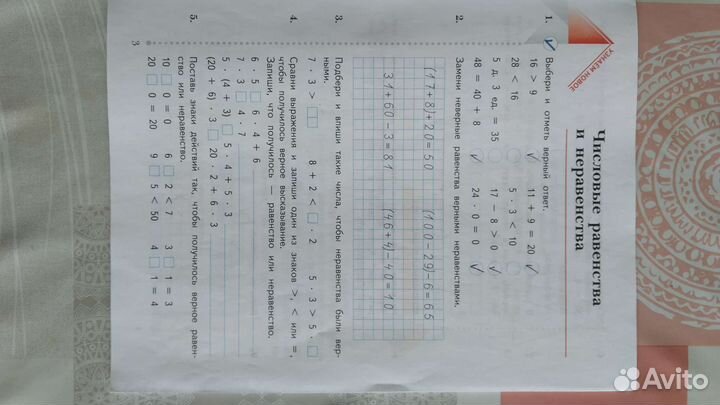 УЗНАЕМ НОВОЕ
Числовые равенства
и неравенства
1. Выбери и отметь верный ответ.
16 > 9 ✓ 11 + 9 = 20 ✓
28 < 16 5 · 3 < 10
5 д. 3 ед. = 35 17 − 8 > 0 ✓
48 = 40 + 8 ✓ 24 · 0 = 0 ✓
2. Замени неверные равенства верными неравенствами.
(17+8)+20=50 (100-29)-6=65
31+60-3=81 (46+4)-40=10
3. Подбери и впиши такие числа, чтобы неравенства были вер-
ными.
7 · 3 > □ 8 + 2 < □ · 2 5 · 3 > 5 · □
4. Сравни выражения и запиши один из знаков >, < или =,
чтобы получилось верное высказывание.
Запиши, что получилось — равенство или неравенство.
6 · 5 □ 6 · 4 + 6
7 · 3 □ 4 · 7
5 · (4 + 3) □ 5 · 4 + 5 · 3
(20 + 6) · 3 □ 20 · 2 + 6 · 3
5. Поставь знаки действий так, чтобы получилось верное равен-
ство или неравенство.
10 □ 0 = 0 6 □ 2 < 7 3 □ 1 = 3
20 □ 0 = 20 9 □ 5 < 50 4 □ 1 = 4
3
Avito